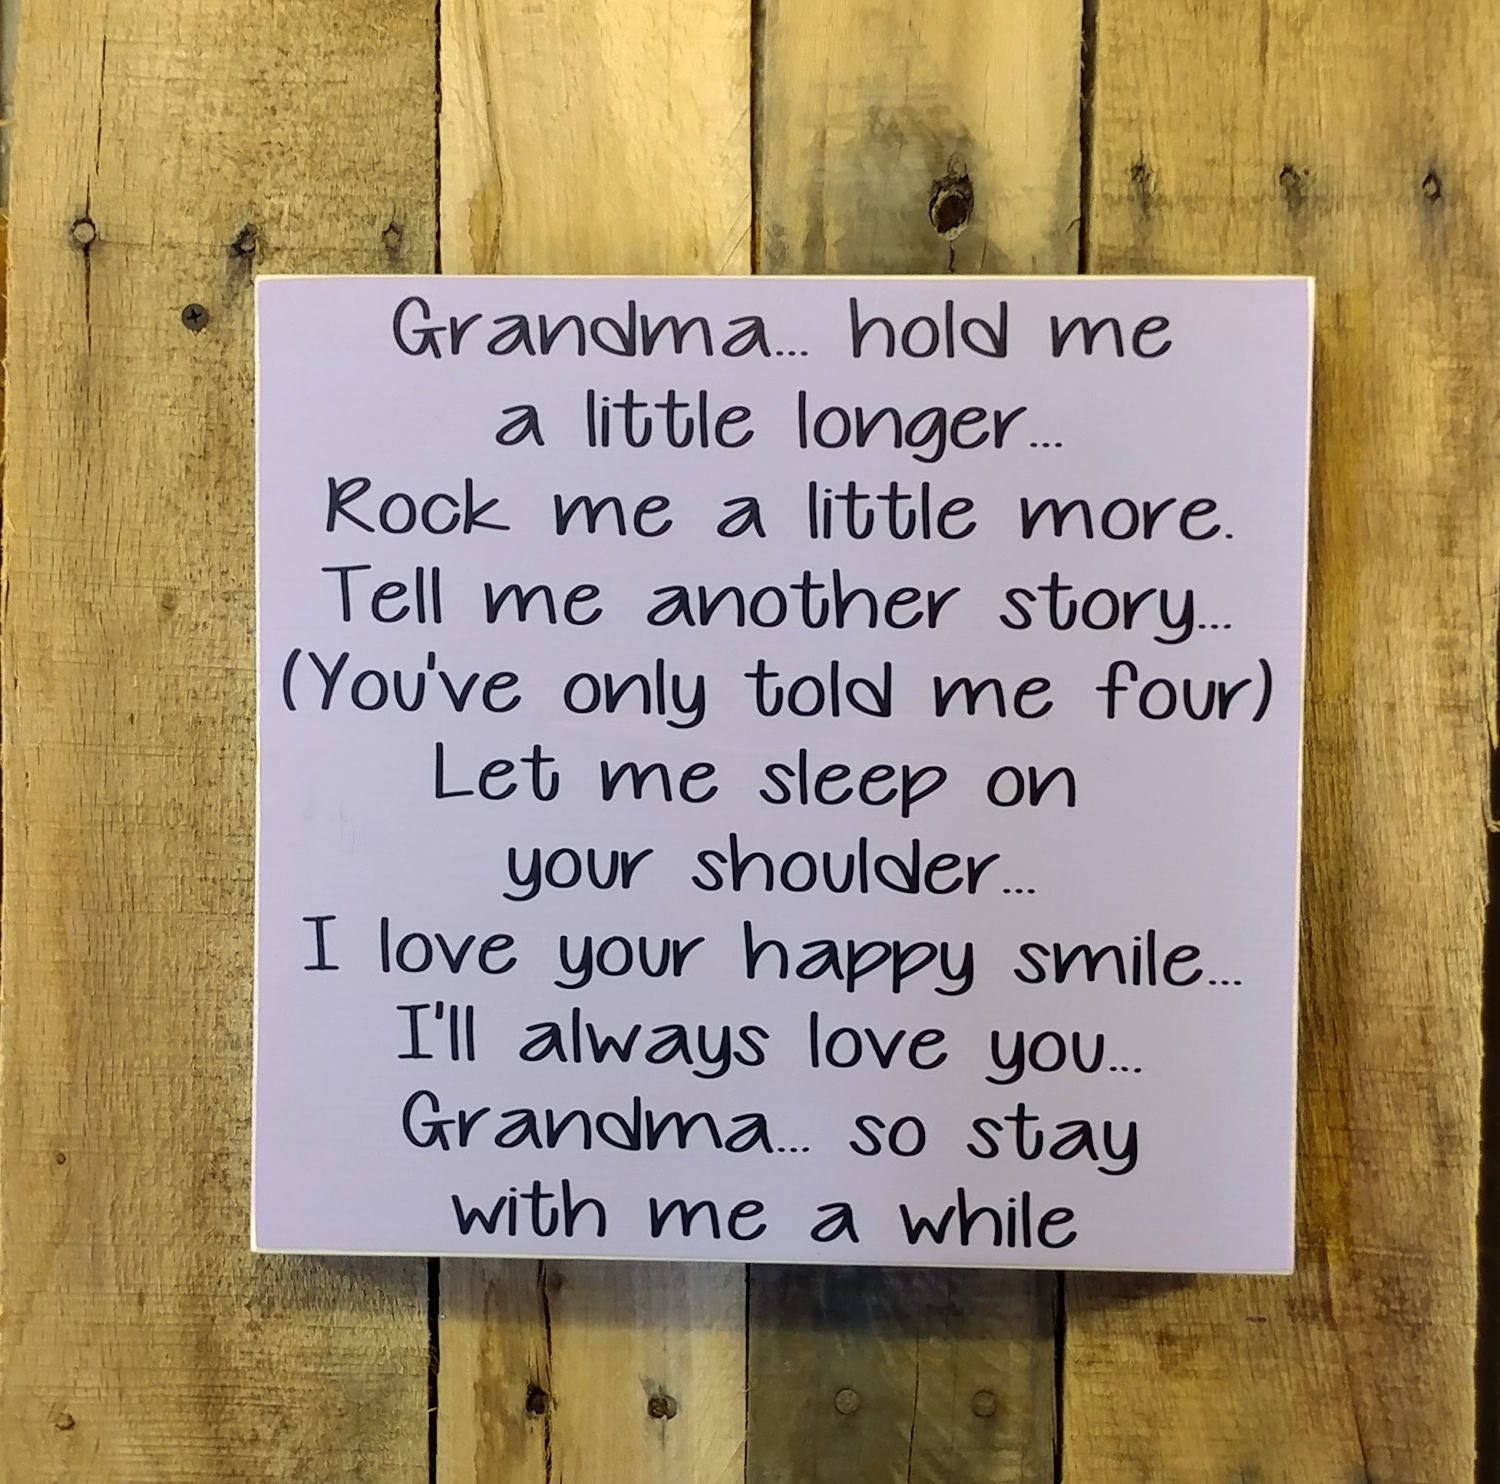 Grandma... hold me
a little longer...
Rock me a little more.
Tell me another story...
(You've only told me four)
Let me sleep on
your shoulder...
I love your happy smile...
I'll always love you...
Grandma... so stay
with me a while